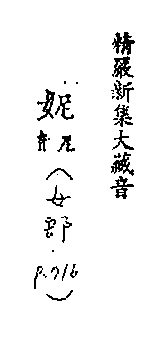 精嚴新集大藏音
妮
（女部
p.716）